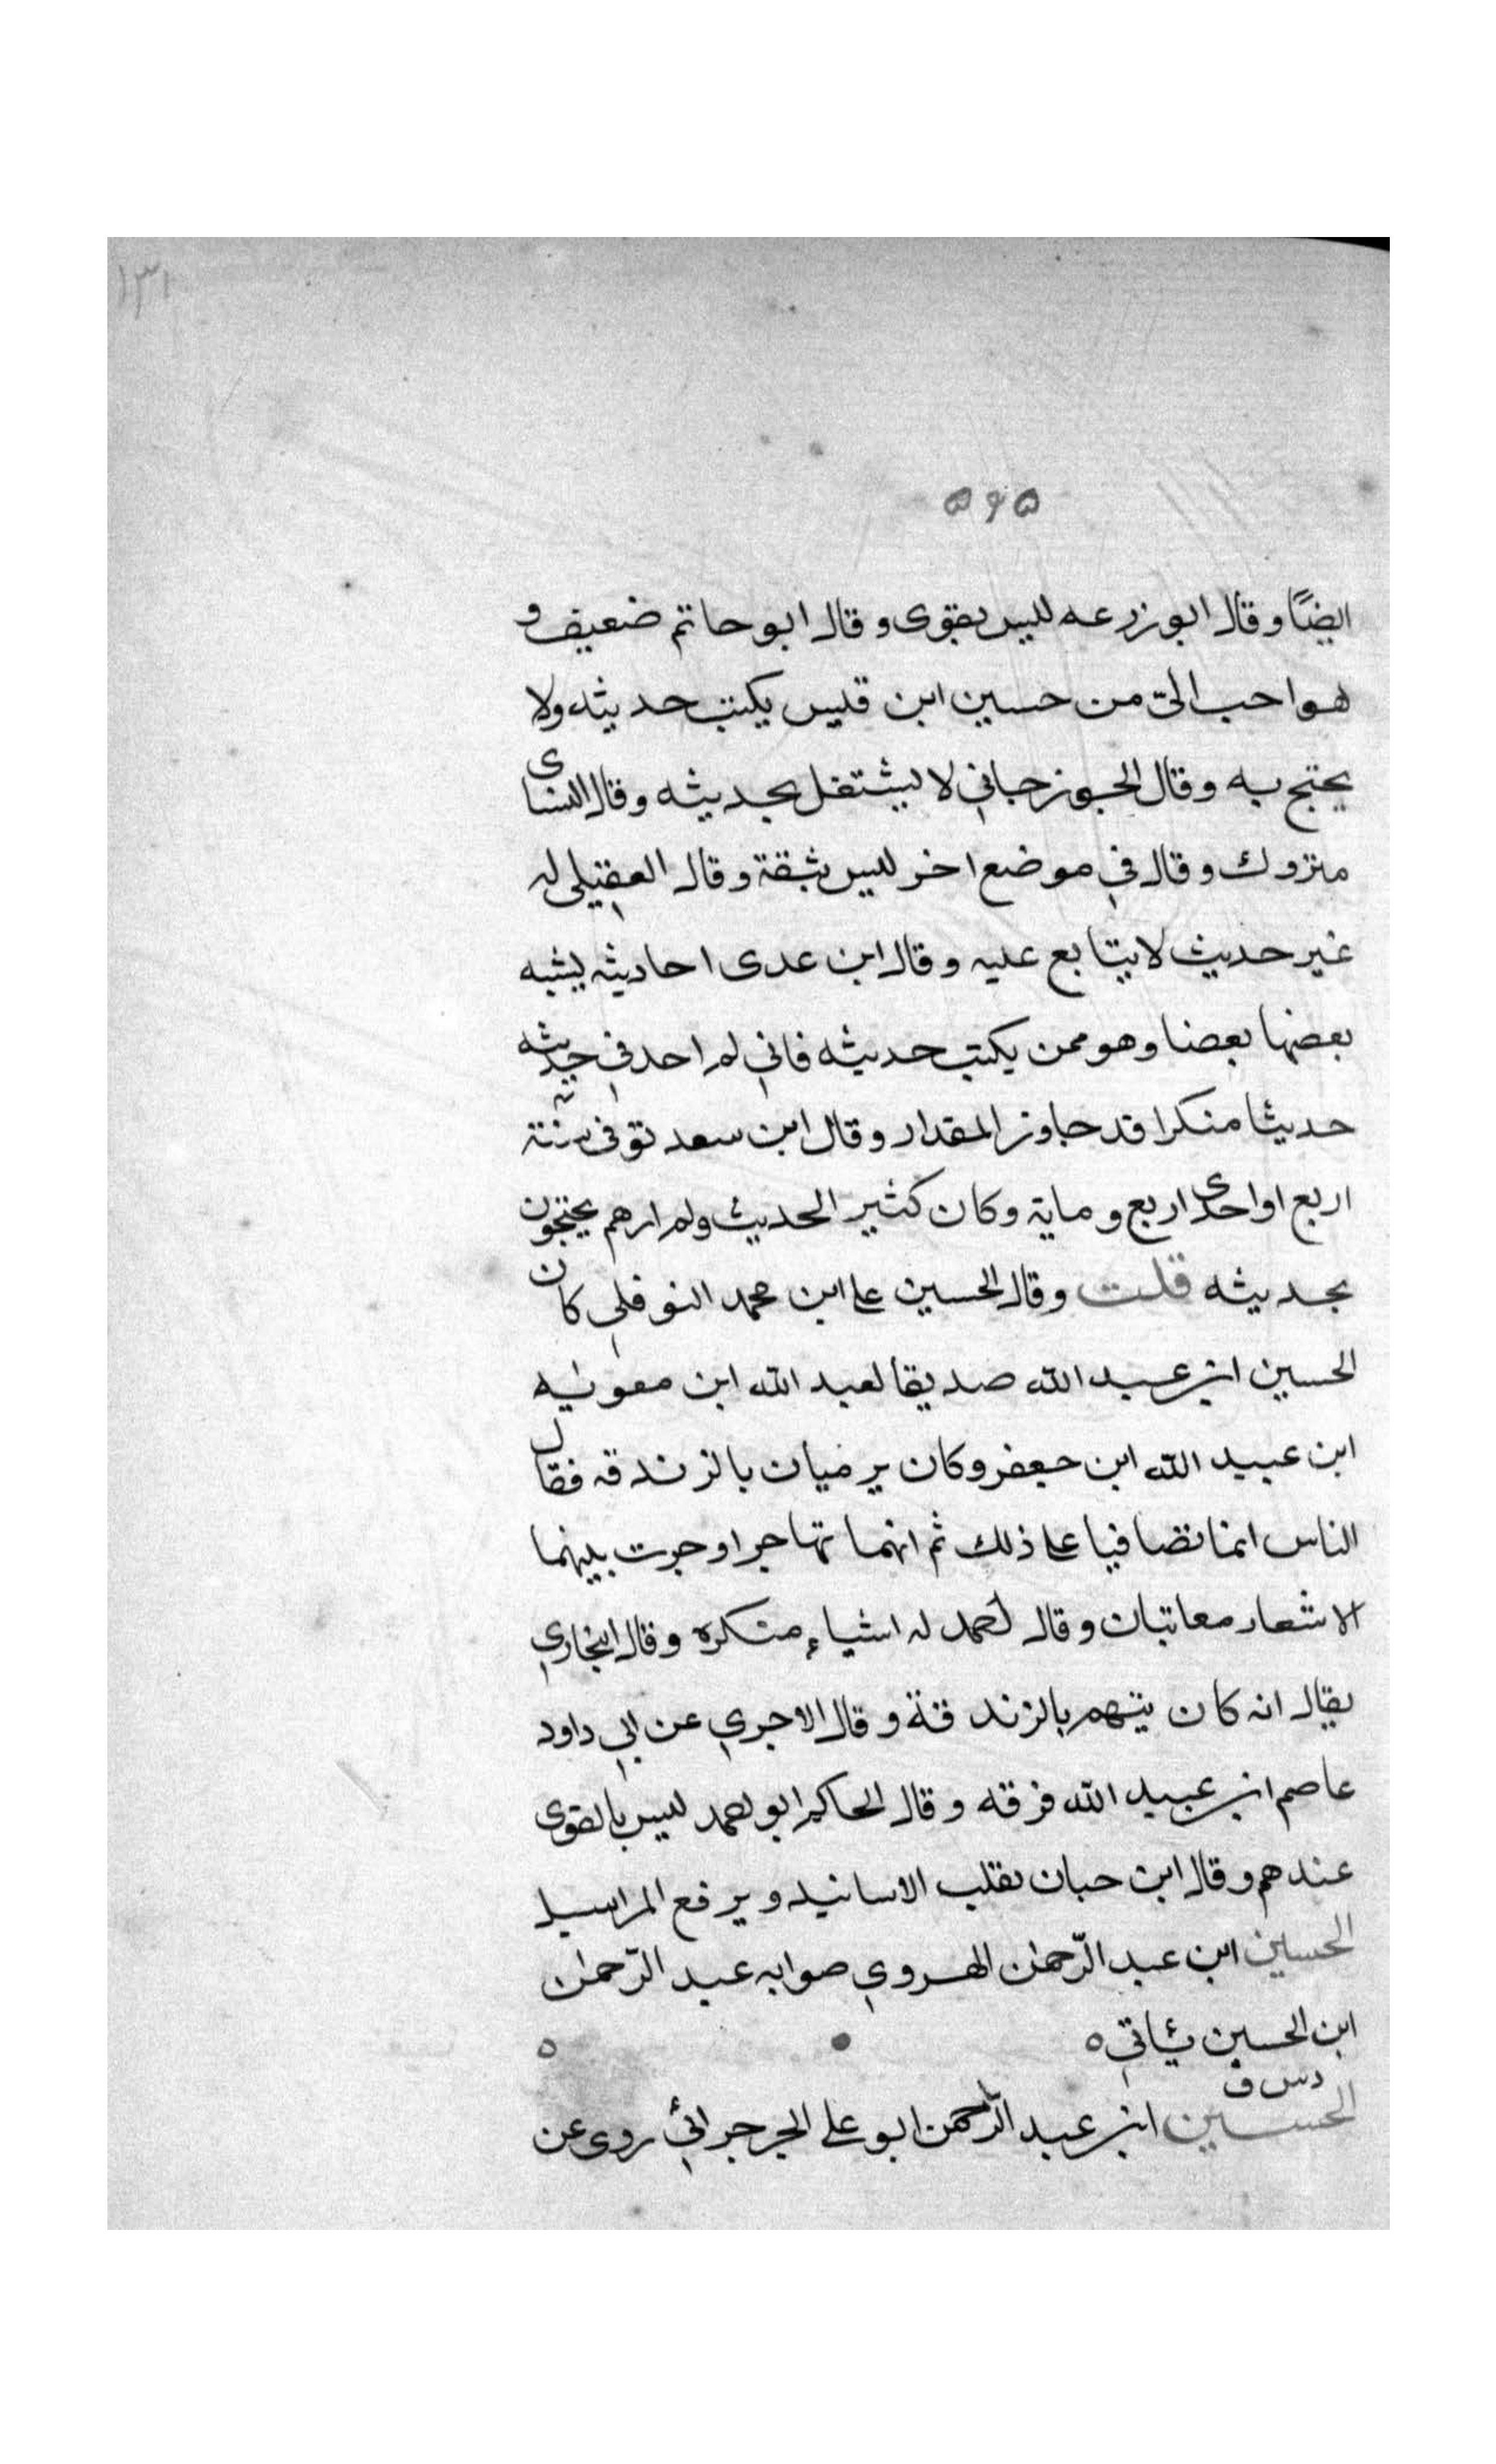 ١٣١
٥٤٥
ايضًا وقال ابو زرعه ليس بقوى وقال ابو حاتم ضعيف و
هو احب الىّ من حسين ابن قيس يكتب حديثه ولا
يحتج به وقال الجوزجاني لا يشتغل بحديثه وقال النساى
متروك وقال في موضع اخر ليس بثقة وقال العقيلى له
غير حديث لا يتابع عليه وقال ابن عدى احاديثه يشبه
بعضها بعضا وهو ممن يكتب حديثه فاني لم اجد في حديثه
حديثا منكرا قد جاوز المقدار وقال ابن سعد توفى سنة
اربع او احدى اربع وماية وكان كثير الحديث ولم ارهم يحتجون
بحديثه قلت وقال الحسين على ابن محمد النوفلي كان
الحسين ابن عبد الله صديقا لعبد الله ابن معويه
ابن عبيد الله ابن جعفر وكان يرميان بالزندقه فقال
الناس انما تصافيا على ذلك ثم انهما تهاجرا وجرت بينهما
الاشعار معاتبات وقال احمد له اشياء منكره وقال البخاري
يقال انه كان يتهم بالزندقة وقال الاجري عن ابي داود
عاصم ابن عبيد الله فرقه وقال الحاكم ابو احمد ليس بالقوى
عندهم وقال ابن حبان يقلب الاسانيد ويرفع المراسيل
الحسين ابن عبد الرّحمٰن الهروي صوابه عبد الرّحمٰن
ابن الحسين ئاتي ه ه
د س ق
الحسين ابن عبد الرّحمن ابو على الجرجرائي روى عن